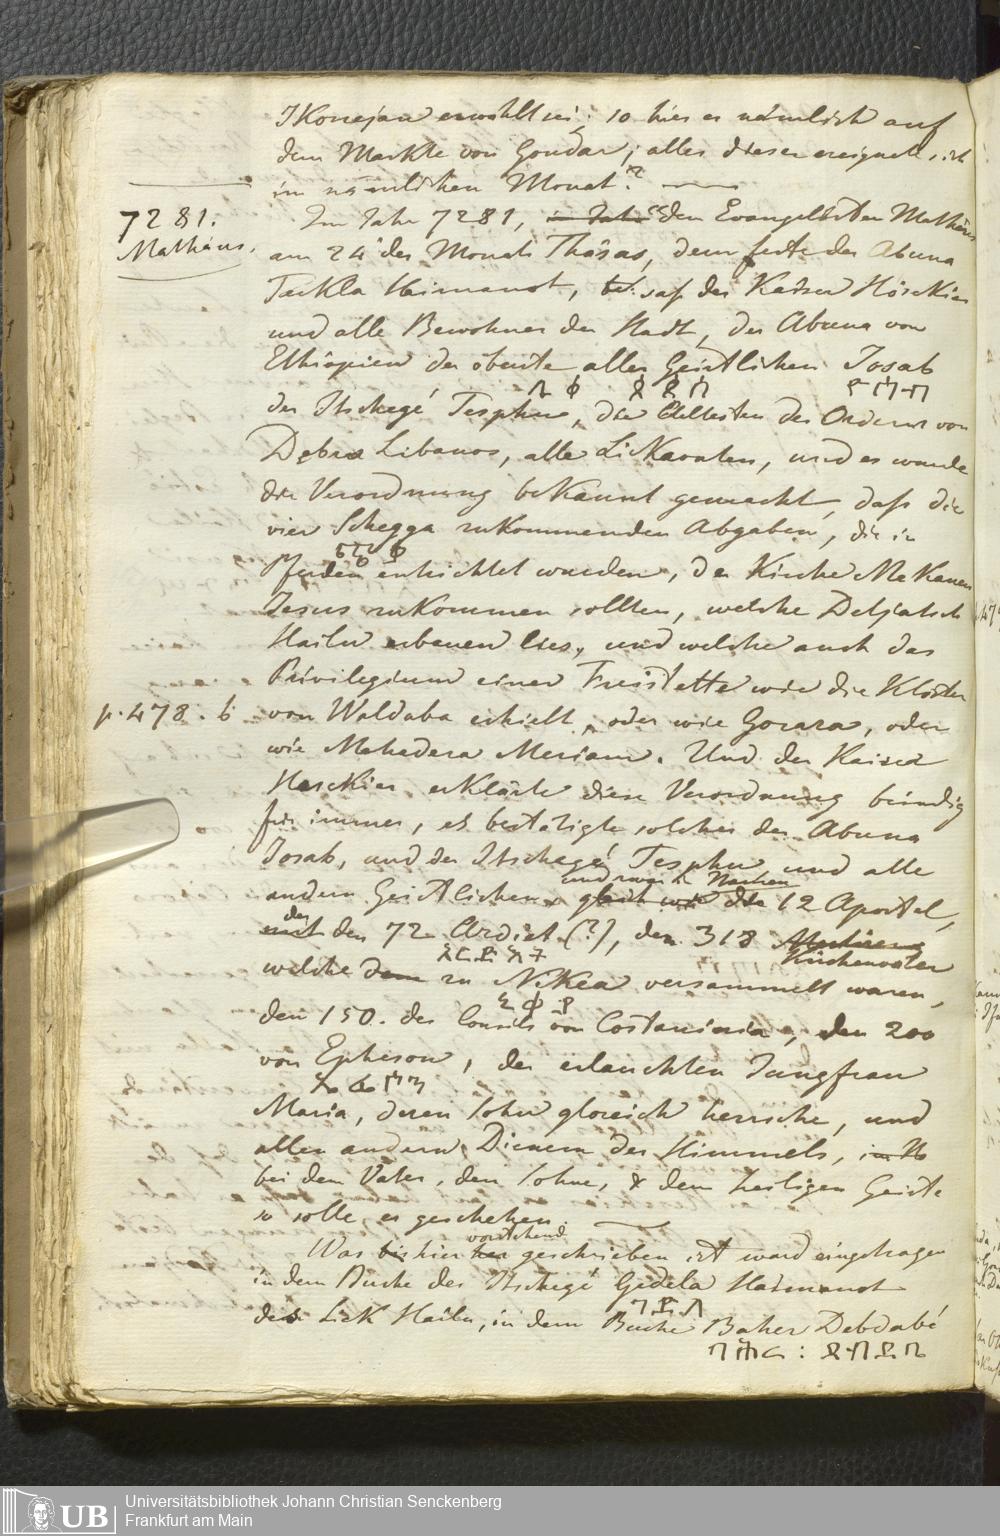 IKonejan erwählt sei; so hies es nämlich auf
dem Markte von Gondar; alles dieses ereignete sich
im nämlichen Monat.
7281.
Mathäus.
Im Jahr 7281, im Jahr des Evangelisten Mathäus
am 24 des Monats Thäsas, dem feste des Abuna
Teckla Haimanot, saß der Kaiser Hiskias
und alle Bewohner der Stadt, der Abuna von
Ethiopien der oberste aller Geistlichen Josab
der Itschegé Tesphu, die Aeltesten des Ordens von
Debra Libanos, alle LicKaonten, und es wurde
die Verordnung beKannt gemacht, daß die
vier Schegga zukommenden Abgaben, die in
Pferden entrichtet wurden, der Kirche MeKanen
Jesus zukommen sollten, welche Detjatsch
Hailu erbauen lies, und welche auch das
Privilegium einer Freistette wie die Klöster
p. 478. b
von Waldaba erhielt, oder wie Gorara, oder
wie Mahedera Meriam. Und der Kaiser
HesKias erklärte diese Verordnung bündig
für immer, es bestätigte solches der Abuna
Josab, und der Itschegé Tesphu und alle
andern Geistlichen, gleich wie die 12 Apostel,
mit den 72 Ardiet (?), den 318
Kirchenväter
welche zu NiKea versammelt waren,
den 150. des Consils von Costaninia, den 200
von Epheson, der erlauchten Jungfrau
Maria, deren Sohn gloreich herrsche, und
allen andern Dienern des Himmels,
bei dem Vater, dem Sohne, & dem heiligen Geiste
so solle es geschehen.
vorstehend
Was bis hier her geschrieben ist ward eingetragen
in dem Buche des Itschegé Gedela Haimanot
des LicK Hailu, in dem Buche Baher Debdabé
ባሕረ : ደብዳቤ
UB
Universitätsbibliothek Johann Christian Senckenberg
Frankfurt am Main